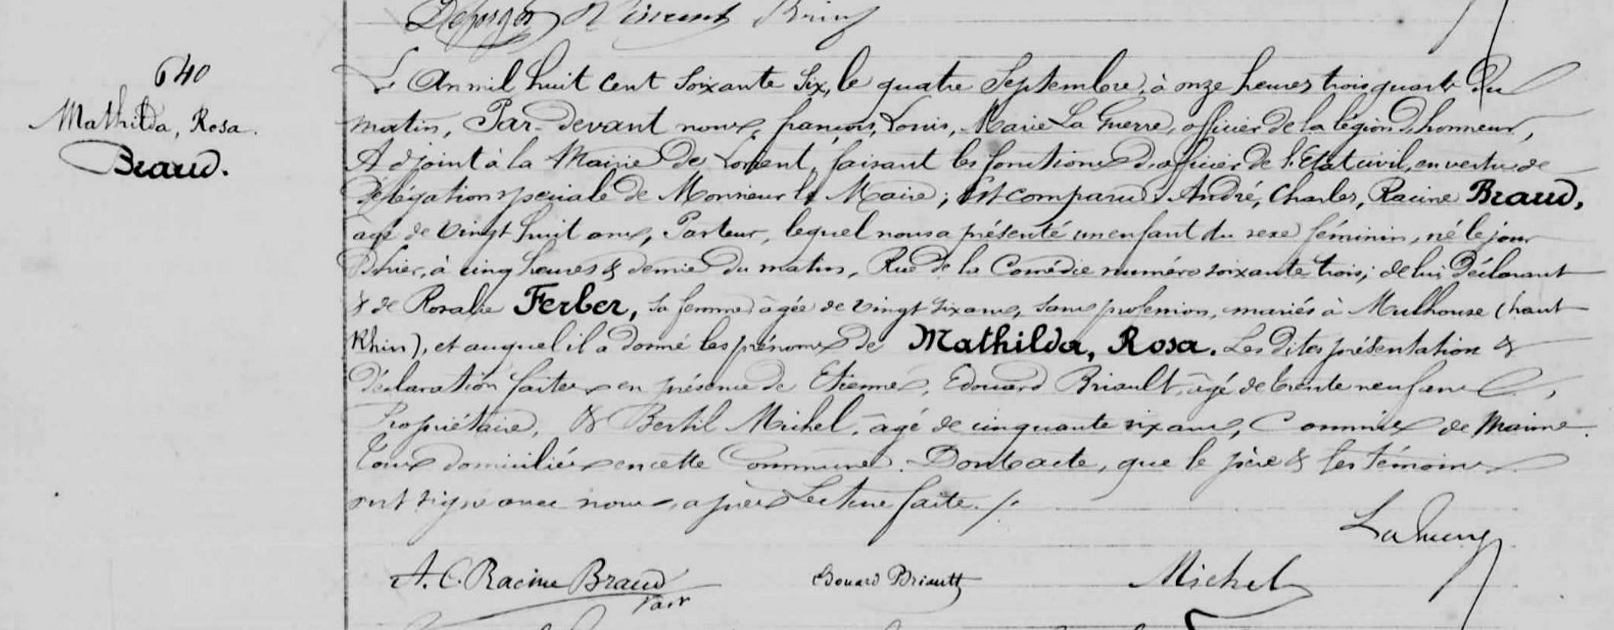 640
Mathilda, Rosa.
Braud.
L'An mil huit cent soixante six, le quatre Septembre, à onze heures trois quarts du
matin, Par-devant nous, françois, Louis, Marie La Guerre, officier de la légion d'honneur,
Adjoint à la Mairie de Lorient, faisant les fonctions d'officier de l'Etat civil, en vertu de
délégation spéciale de Monsieur le Maire; Est comparu André, Charles, Racine Braud,
agé de vingt huit ans, Pasteur, lequel nous a présenté un enfant du sexe féminin, né le jour
d'hier, à cinq heures & demie du matin, Rue de la Comédie numéro soixante trois; de lui Déclarant
& de Rosalie Ferber, sa femme âgée de vingt six ans, sans profession, mariés à Mulhouse (haut
Rhin), et auquel il a donné les prénoms de Mathilda, Rosa. Les dites présentation &
déclaration faites en présence de Etienne, Edouard Briault, âgé de trente neuf ans,
Propriétaire, & Michel, âgé de cinquante six ans, Commis de Marine.
Tous domiciliés en cette Commune. Dont acte, que le père & les témoins
ont signé avec nous, après Lecture faite./.
A. C. Racine Braud
Edouard Briault
Michel